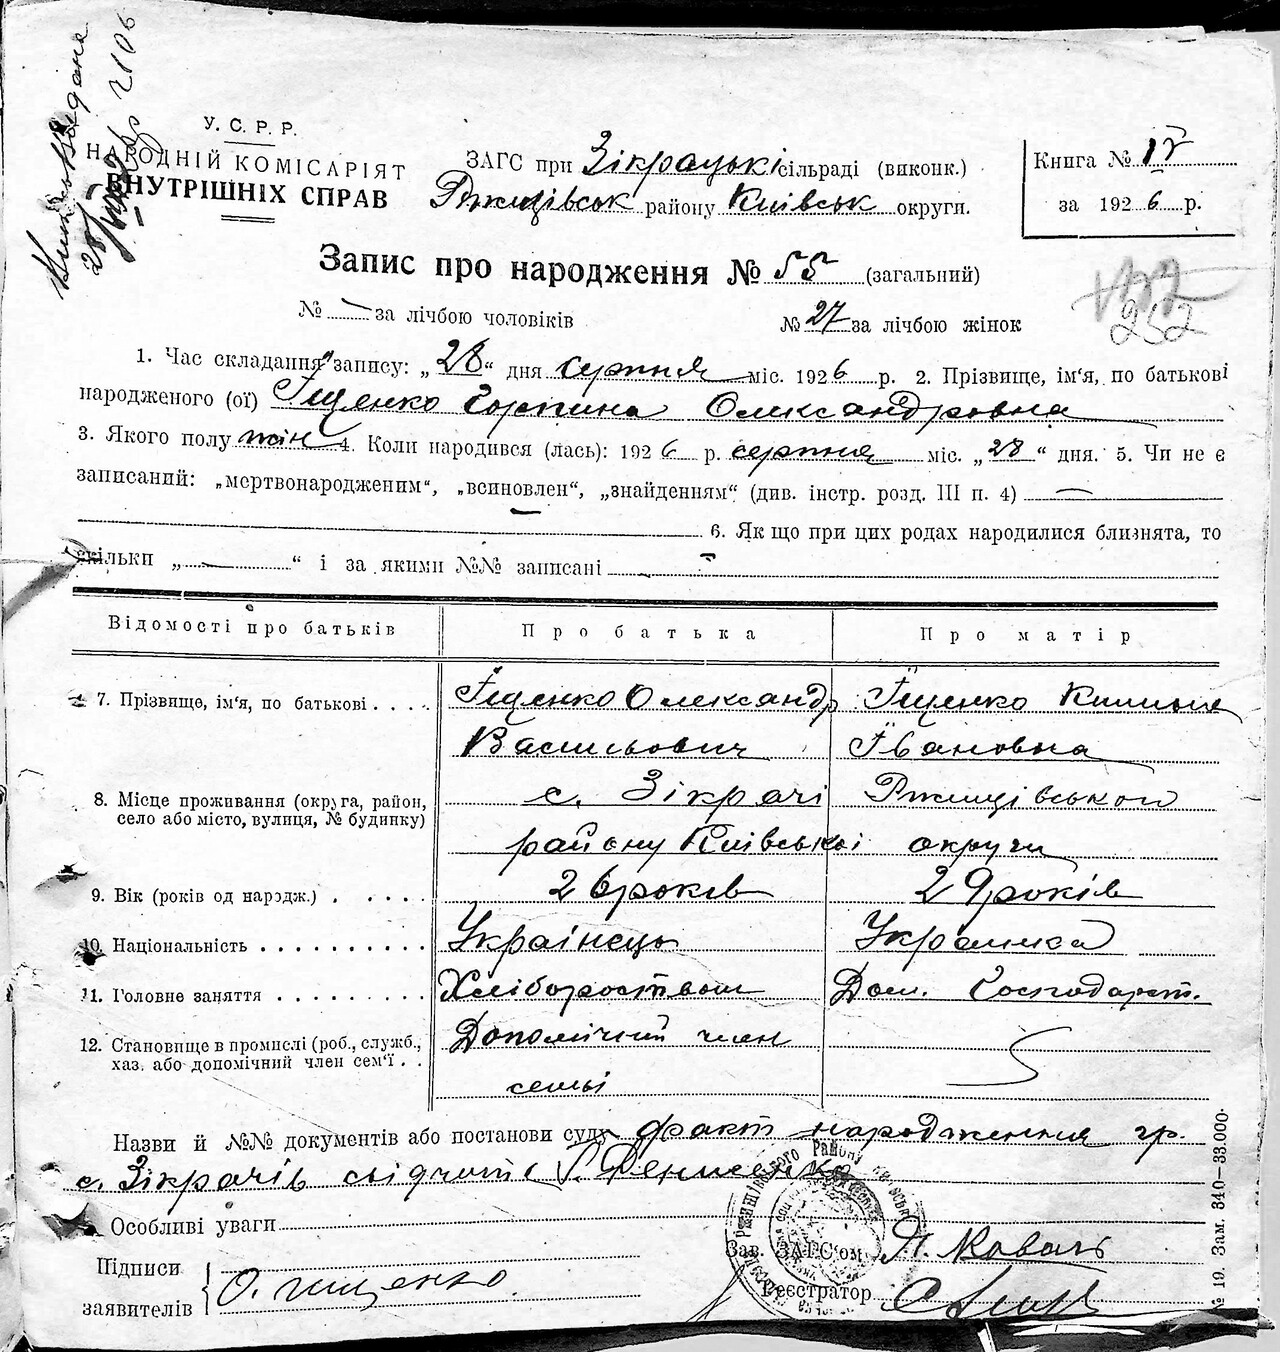 У. С. Р. Р.
НАРОДНІЙ КОМІСАРІЯТ
ВНУТРІШНІХ СПРАВ
ЗАГС при Зікрацькі сільраді (виконк.)
Ржищівськ району Київськ округи.
Книга № IV
за 1926 р.
Запис про народження № 55 (загальний)
№ — за лічбою чоловіків
№ 27 за лічбою жінок
252
1. Час складання запису: „28“ дня серпня міс. 1926 р. 2. Прізвище, ім'я, по батькові
народженого (ої) Іщенко Горпина Олександровна
3. Якого полу жін 4. Коли народився (лась): 1926 р. серпня міс. „28“ дня. 5. Чи не є
записаний: „мертвонародженим“, „всиновлен“, „знайденням“ (див. інстр. розд. III п. 4) —
6. Як що при цих родах народилися близнята, то
скільки „—“ і за якими №№ записані —
Відомості про батьків Про батька Про матір
7. Прізвище, ім'я, по батькові . . . . Іщенко Олександр Іщенко Килина
Васильович Івановна
8. Місце проживання (округа, район, с. Зікрачі Ржищівського
село або місто, вулиця, № будинку) району Київської округи
9. Вік (років од народж.) . . . . . 26 років 29 років
10. Національність . . . . . . . . . . Українець Українка
11. Головне заняття . . . . . . . . . Хліборобством Дом. Господарст.
12. Становище в промислі (роб., служб., Допомічний член
хаз. або допомічний член сем'ї . . семьі
Назви й №№ документів або постанови суду факт народження гр.
с. Зікрачів сьідчить Г. Денисенко
Особливі уваги
Зав. ЗАГС'ом Я. Коваль
Підписи
заявителів О. Іщенко
Реєстратор
№ 19. Зам. 340—33.000.